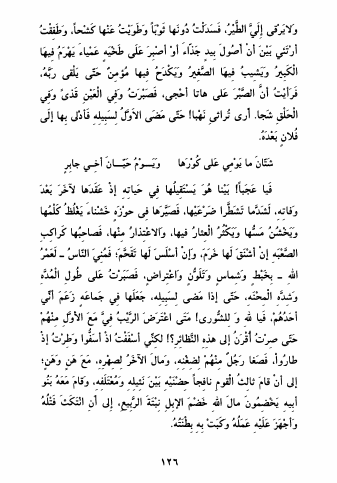 وَلَا يَرْقى إِلَيَّ الطَّيْرُ، فَسَدَلْتُ دُونَهَا ثَوْباً وَطَوَيْتُ عَنْهَا كَشْحاً، وَطَفِقْتُ
أَرْتَئي بَيْنَ أَنْ أَصُولَ بِيدٍ جَذَّاءَ أَوْ أَصْبِرَ عَلى طَخْيَهٍ عَمْياءَ يَهْرَمُ فِيهَا
الْكَبِيرُ وَيَشِيبُ فِيهَا الصَّغِيرُ وَيَكْدَحُ فِيها مُؤْمِنٌ حَتّى يَلْقى رَبَّهُ،
فَرَأَيْتُ أَنَّ الصَّبْرَ عَلى هاتا أَحْجى، فَصَبَرْتُ وَفِي الْعَيْنِ قَذىً وَفِي
الْحَلْقِ شَجا. أَرى تُراثي نَهْبا! حَتّى مَضَى الأَوَّلُ لِسَبِيلِهِ فَأَدْلى بِها إِلى
فُلانٍ بَعْدَهُ.
شَتّانَ ما يَوْمِي عَلى كُورِهَا وَيَــوْمُ حَيّــانَ أَخــي جابِرٍ
فَيا عَجَباً! بَيْنا هُوَ يَسْتَقِيلُها فِي حَياتِهِ إِذْ عَقَدَها لآخَرَ بَعْدَ
وَفاتِهِ، لَشَدَّما تَشَطَّرا ضَرْعَيْها، فَصَيَّرَها فِي حوْزَهٍ خَشْناءَ يَغْلُظُ كَلْمُها
وَيَخْشُنُ مَسُّها وَيَكْثُرُ الْعِثارُ فِيها، وَالاعْتِذارُ مِنْها، فَصاحِبُها كَراكِبِ
الصَّعْبَهِ إِنْ أَشْنَقَ لَها خَرَمَ، وَإِنْ أَسْلَسَ لَها تَقَحَّمَ؛ فَمُنِيَ النّاسُ ـ لَعَمْرُ
اللهِ ـ بِخَبْطٍ وَشِماسٍ وَتَلَوُّنٍ وَاعْتِراضٍ، فَصَبَرْتُ عَلى طُولِ الْمُدَّهِ
وَشِدَّهِ الْمِحْنَهِ، حَتّى إِذا مَضى لِسَبِيلِهِ، جَعَلَها فِي جَماعَهٍ زَعَمَ أَنِّي
أَحَدُهُمْ، فَيا لَلهِ وَ لِلشُّورى! مَتَى اعْتَرَضَ الرَّيْبُ فِيَّ مَعَ الأَوَّلِ مِنْهُمْ
حَتّى صِرْتُ أُقْرَنُ إِلى هذِهِ النَّظائِرِ؟! لكِنِّي أَسْفَفْتُ إِذْ أَسَفُّوا وَطِرْتُ إِذْ
طارُوا، فَصَغا رَجُلٌ مِنْهُمْ لِضِغْنِهِ، وَمالَ الآخَرُ لِصِهْرِهِ، مَعَ هَنٍ وَهَنٍ؛
إِلى أَنْ قامَ ثالِثُ الْقَومِ نافِجاً حِضْنَيْهِ بَيْنَ نَثِيلِهِ وَمُعْتَلَفِهِ، وَقامَ مَعَهُ بَنُو
أَبِيهِ يَخْضَمُونَ مالَ اللهِ خَضْمَ الإِبِلِ نِبْتَهَ الرَّبِيعِ، إِلى أَنِ انْتَكَثَ فَتْلُهُ
وَأَجْهَزَ عَلَيْهِ عَمَلُهُ وَكَبَتْ بِهِ بِطْنَتُهُ.
١٢٦